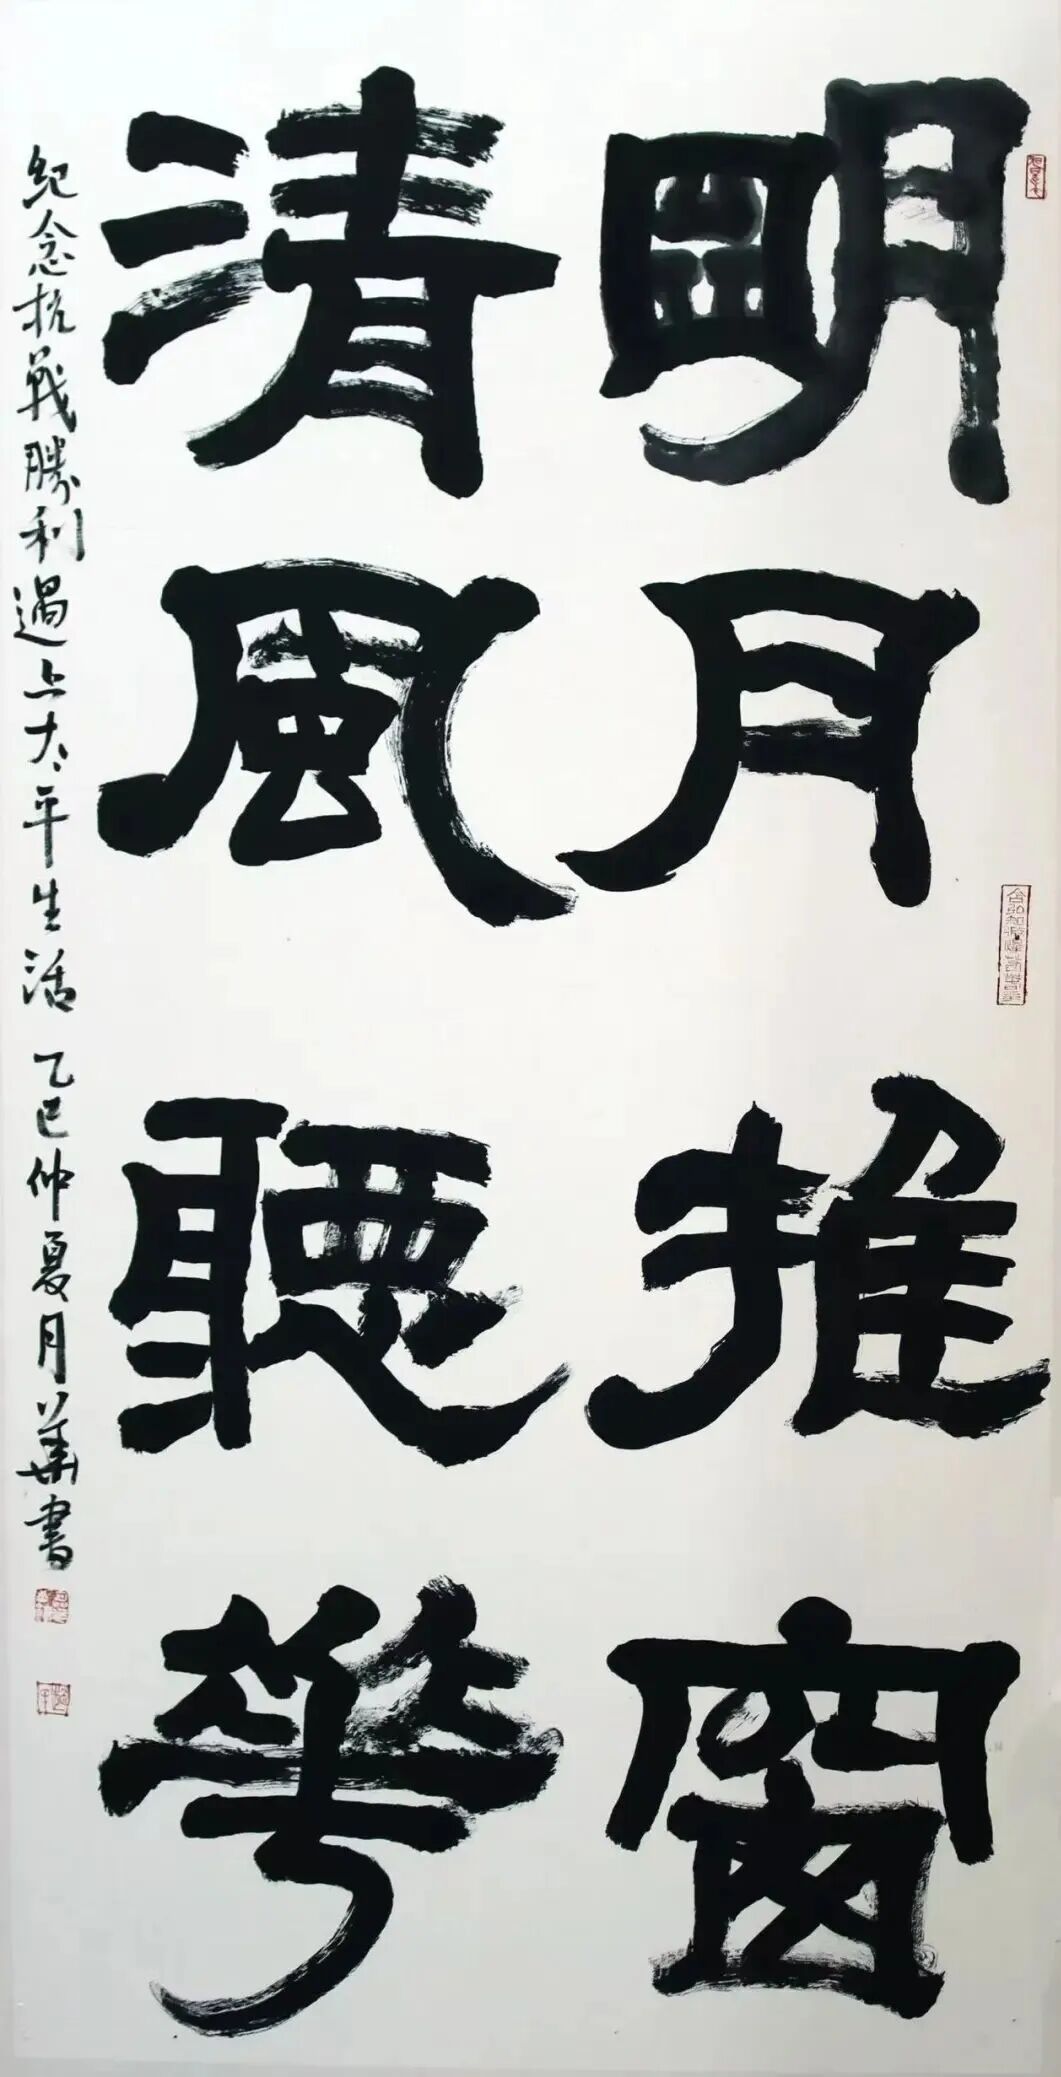 明月推窗
清風聽華
紀念抗戰勝利過上太平生活 乙巳仲夏月華書